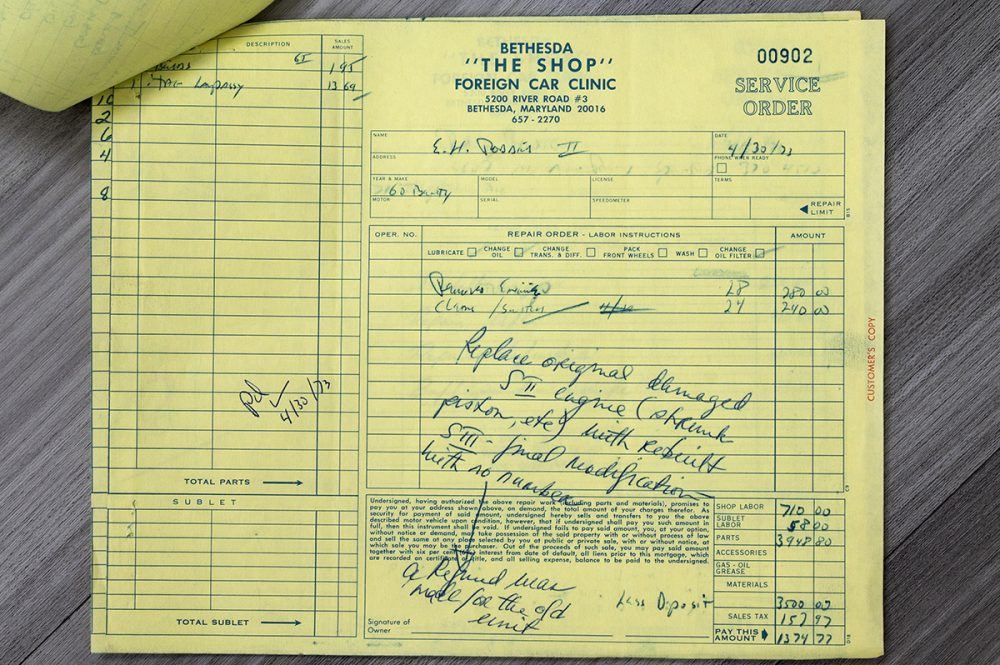 DESCRIPTION
SALES AMOUNT
65
1 95
1
13 69
10
2
6
4
8
pd ✓
4/30/73
TOTAL PARTS
SUBLET
TOTAL SUBLET
BETHESDA
"THE SHOP"
FOREIGN CAR CLINIC
5200 RIVER ROAD #3
BETHESDA, MARYLAND 20016
657 - 2270
00902
SERVICE
ORDER
NAME
E. H. II
DATE
4/30/73
ADDRESS
PHONE WHEN READY
YEAR & MAKE
60 Bentley
MODEL
LICENSE
TERMS
MOTOR
SERIAL
SPEEDOMETER
REPAIR LIMIT
OPER. NO.
REPAIR ORDER - LABOR INSTRUCTIONS
AMOUNT
LUBRICATE
CHANGE OIL
CHANGE TRANS. & DIFF.
PACK FRONT WHEELS
WASH
CHANGE OIL FILTER
28 280 00
24 240 00
Replace original damaged
S II engine (
piston, etc) with rebuilt
S III - final modification
with no number
CUSTOMER'S COPY
Undersigned, having authorized the above repair work (including parts and materials), promises to
pay you at your address shown above, on demand, the total amount of your charges therefor. As
security for payment of said amount, undersigned hereby sells and transfers to you the above
described motor vehicle upon condition, however, that if undersigned shall pay you such amount in
full, then this instrument shall be void. If undersigned fails to pay said amount, you, at your option,
without notice or demand, may take possession of the said property with or without process of law
and sell the same or any part selected by you at public or private sale, with or without notice, at
which sale you may be the purchaser. Out of the proceeds of such sale, you may pay said amount
together with six per cent interest from date of default, all liens prior to this mortgage, which
are recorded on certificate of title, and all selling expense, balance to be paid to the undersigned.
a Refund was
made for the old
unit
Signature of
Owner
SHOP LABOR 710 00
SUBLET LABOR 58 00
PARTS 3948 80
ACCESSORIES
GAS - OIL GREASE
MATERIALS
Less Deposit 3500 00
SALES TAX 157 97
PAY THIS AMOUNT 1374 77